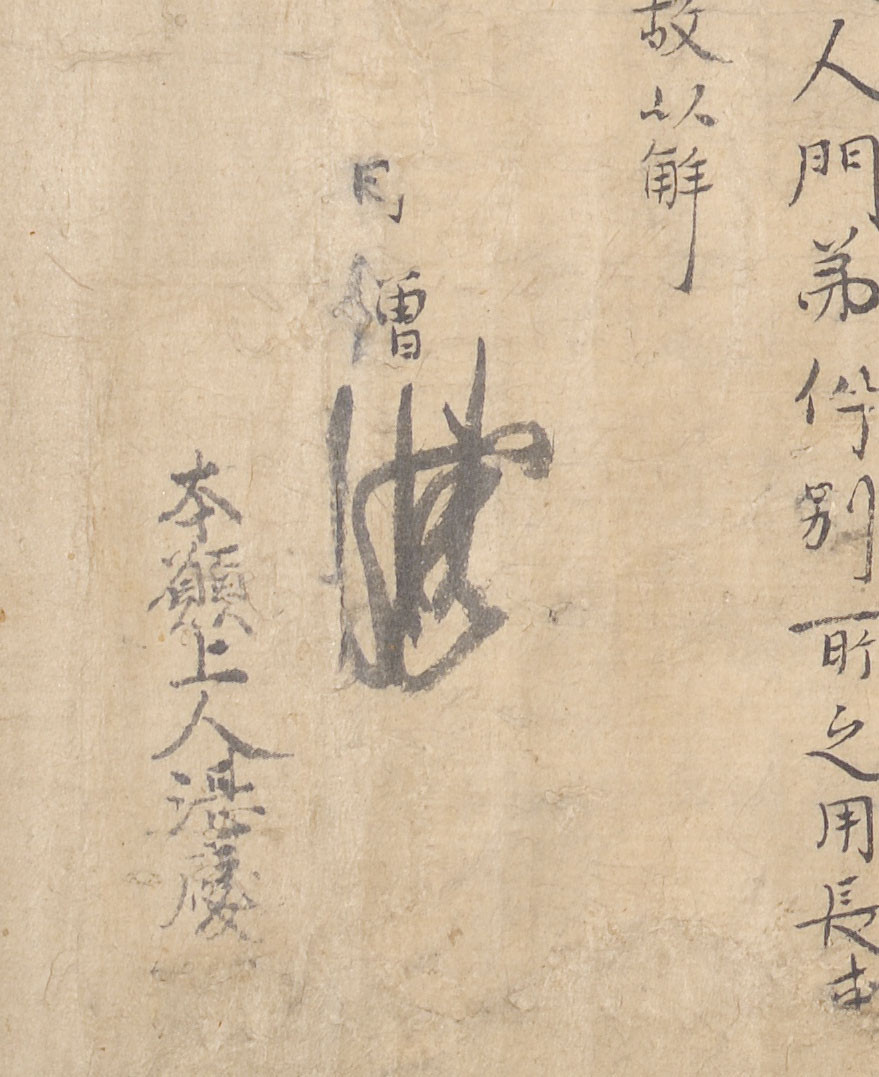 人門弟仵別所之用長
故以解
僧
本願上人湛慶